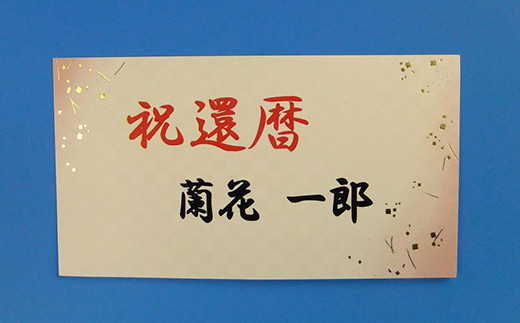 祝還暦
蘭花 一郎